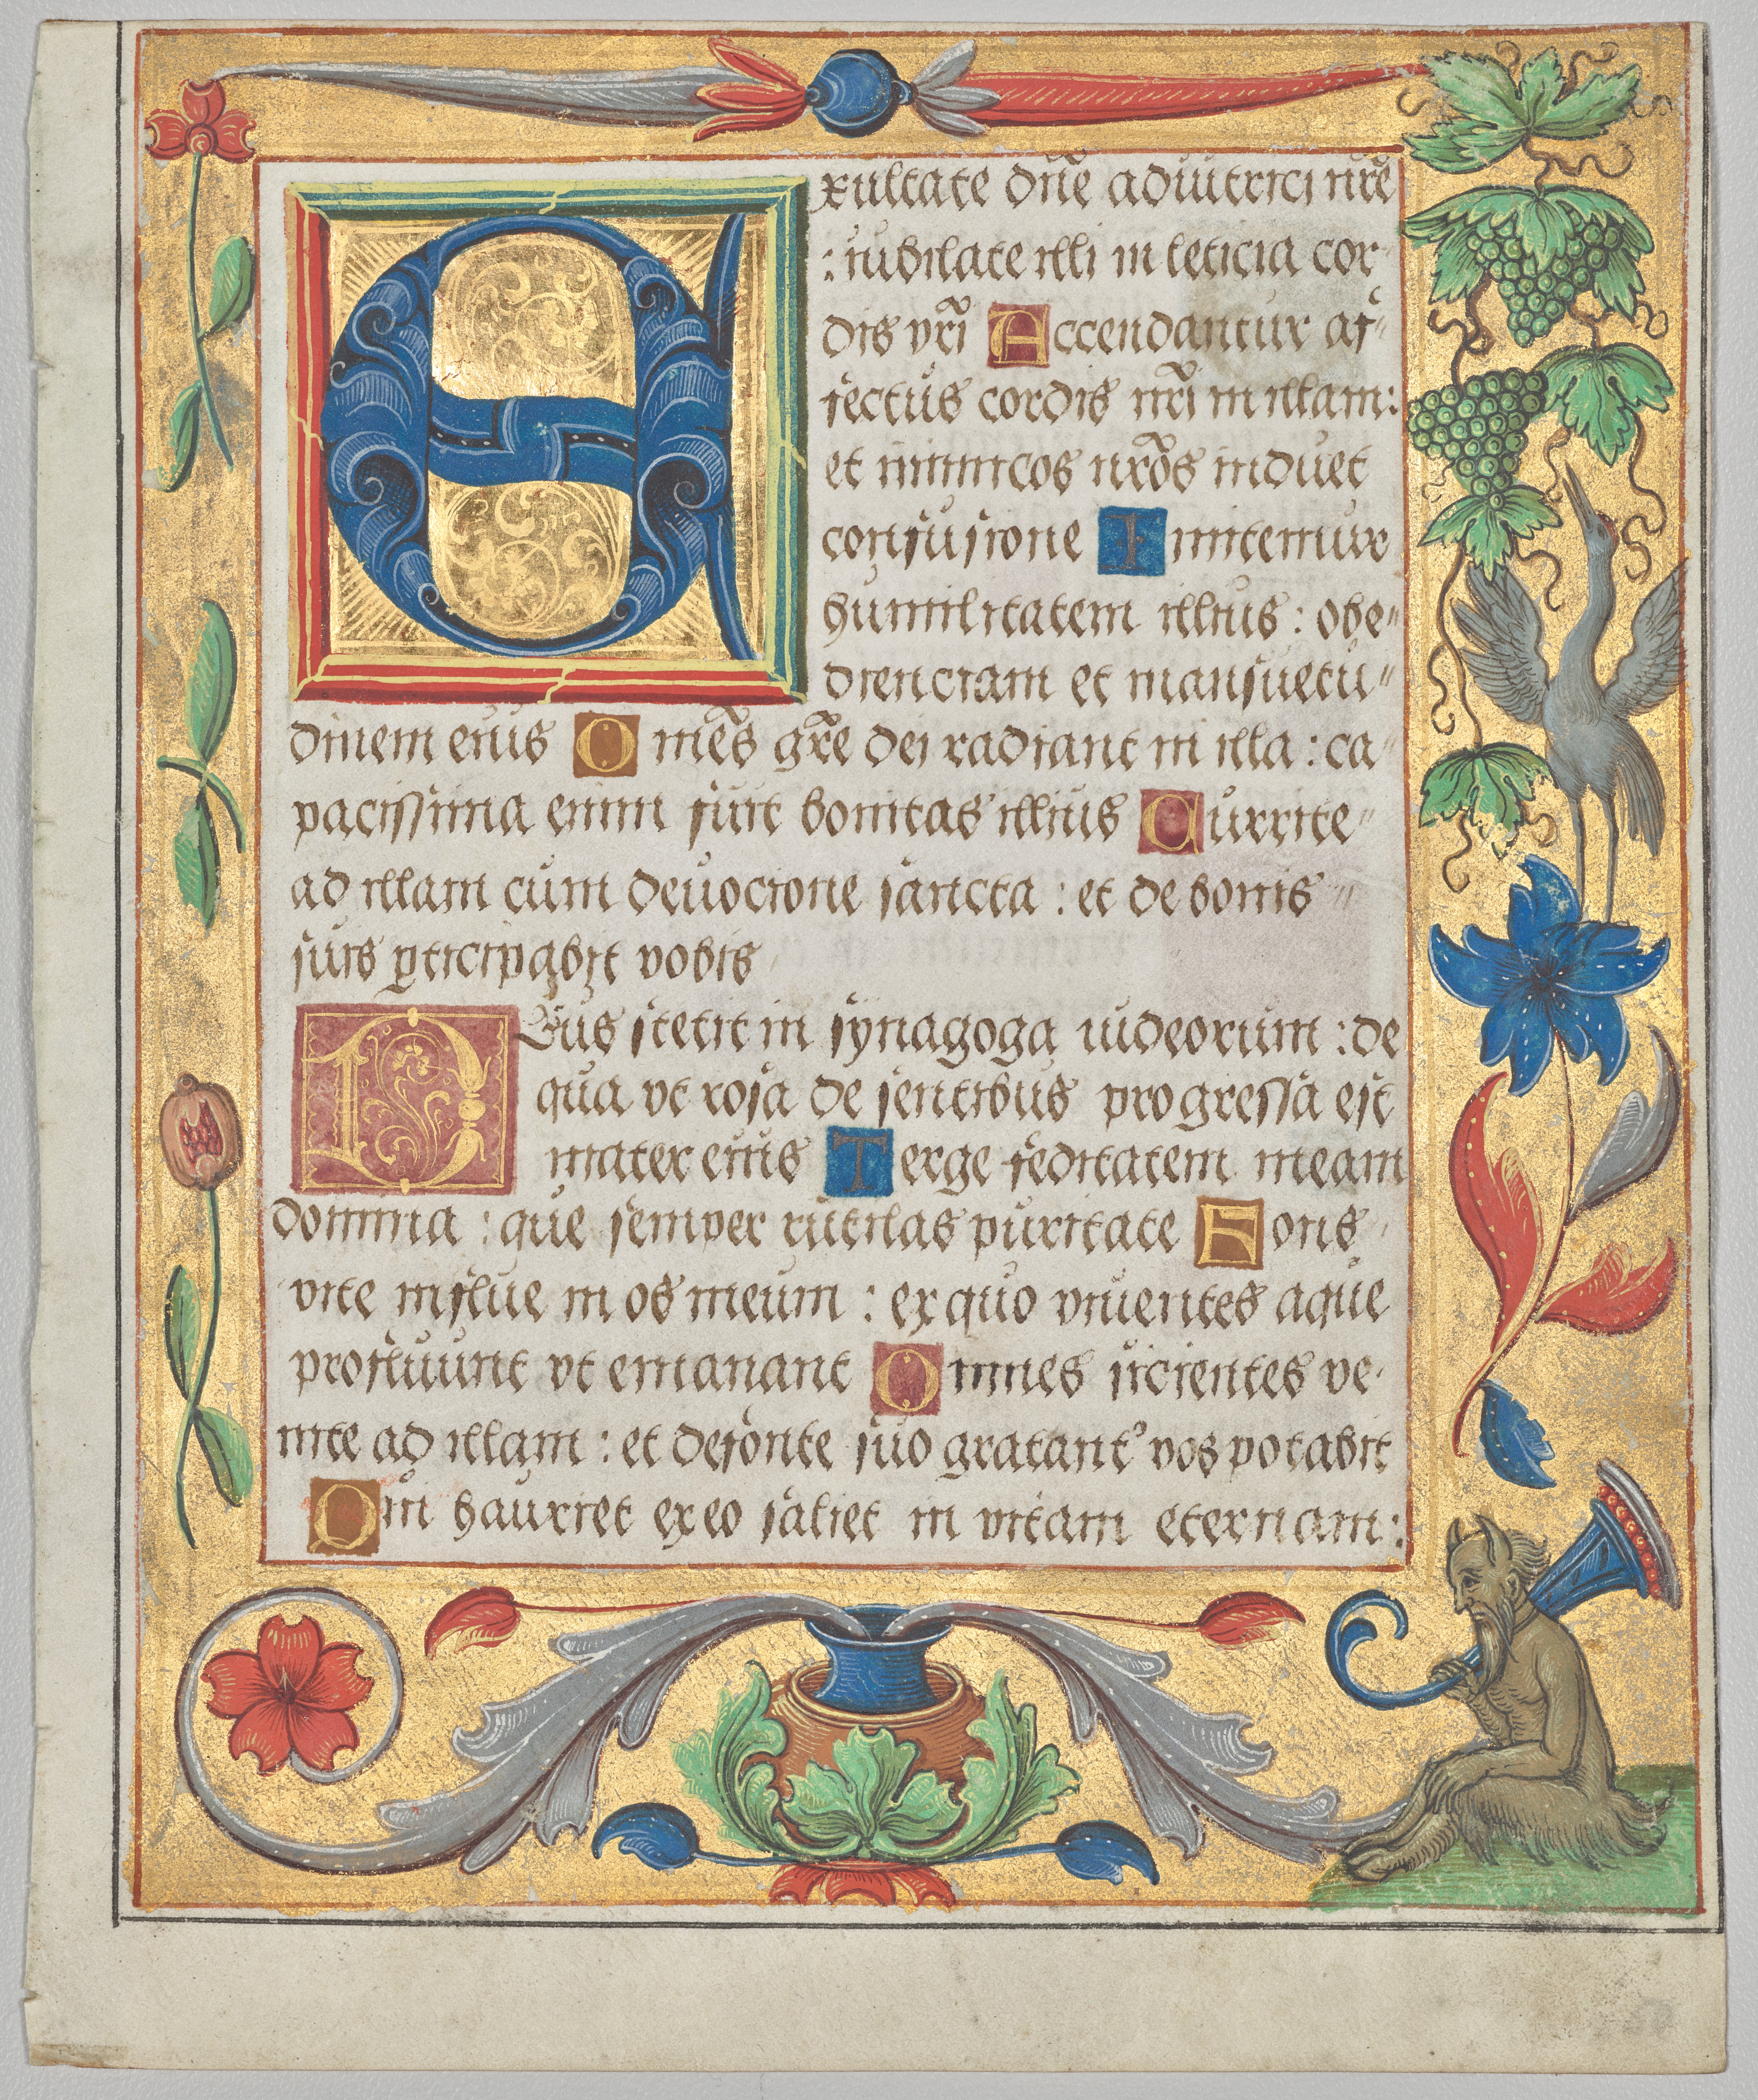 Exultate dn̄e adiutrici nr̄e
: iubilate illi in leticia cor
dis vr̄i Accendantur af〃
fectus cordis nr̄i in illam:
et inimicos nr̄os induet
confusione Imitemur
humilitatem illius : obe〃
dienciam et mansuetu〃
dinem eius Omēs gr̄e dei radiant in illa : ca〃
pacissima enim fuit bonitas illius Currite〃
ad illam cum deuocione sancta : et de bonis 〃
suis ꝑticipabit vobis
Deus stetit in synagoga iudeorum : de
qua vt rosa de sentibus progressa est
mater eius Terge feditatem meam
domina : que semper rutilas puritate Fons
vite influe in os meum : ex quo viuentes aque
profluunt vt emanant Omnes sicientes ve
nite ad illam : et de fonte suo gratantʾ vos potabit
Qui hauriet ex eo saliet in vitam eternam :